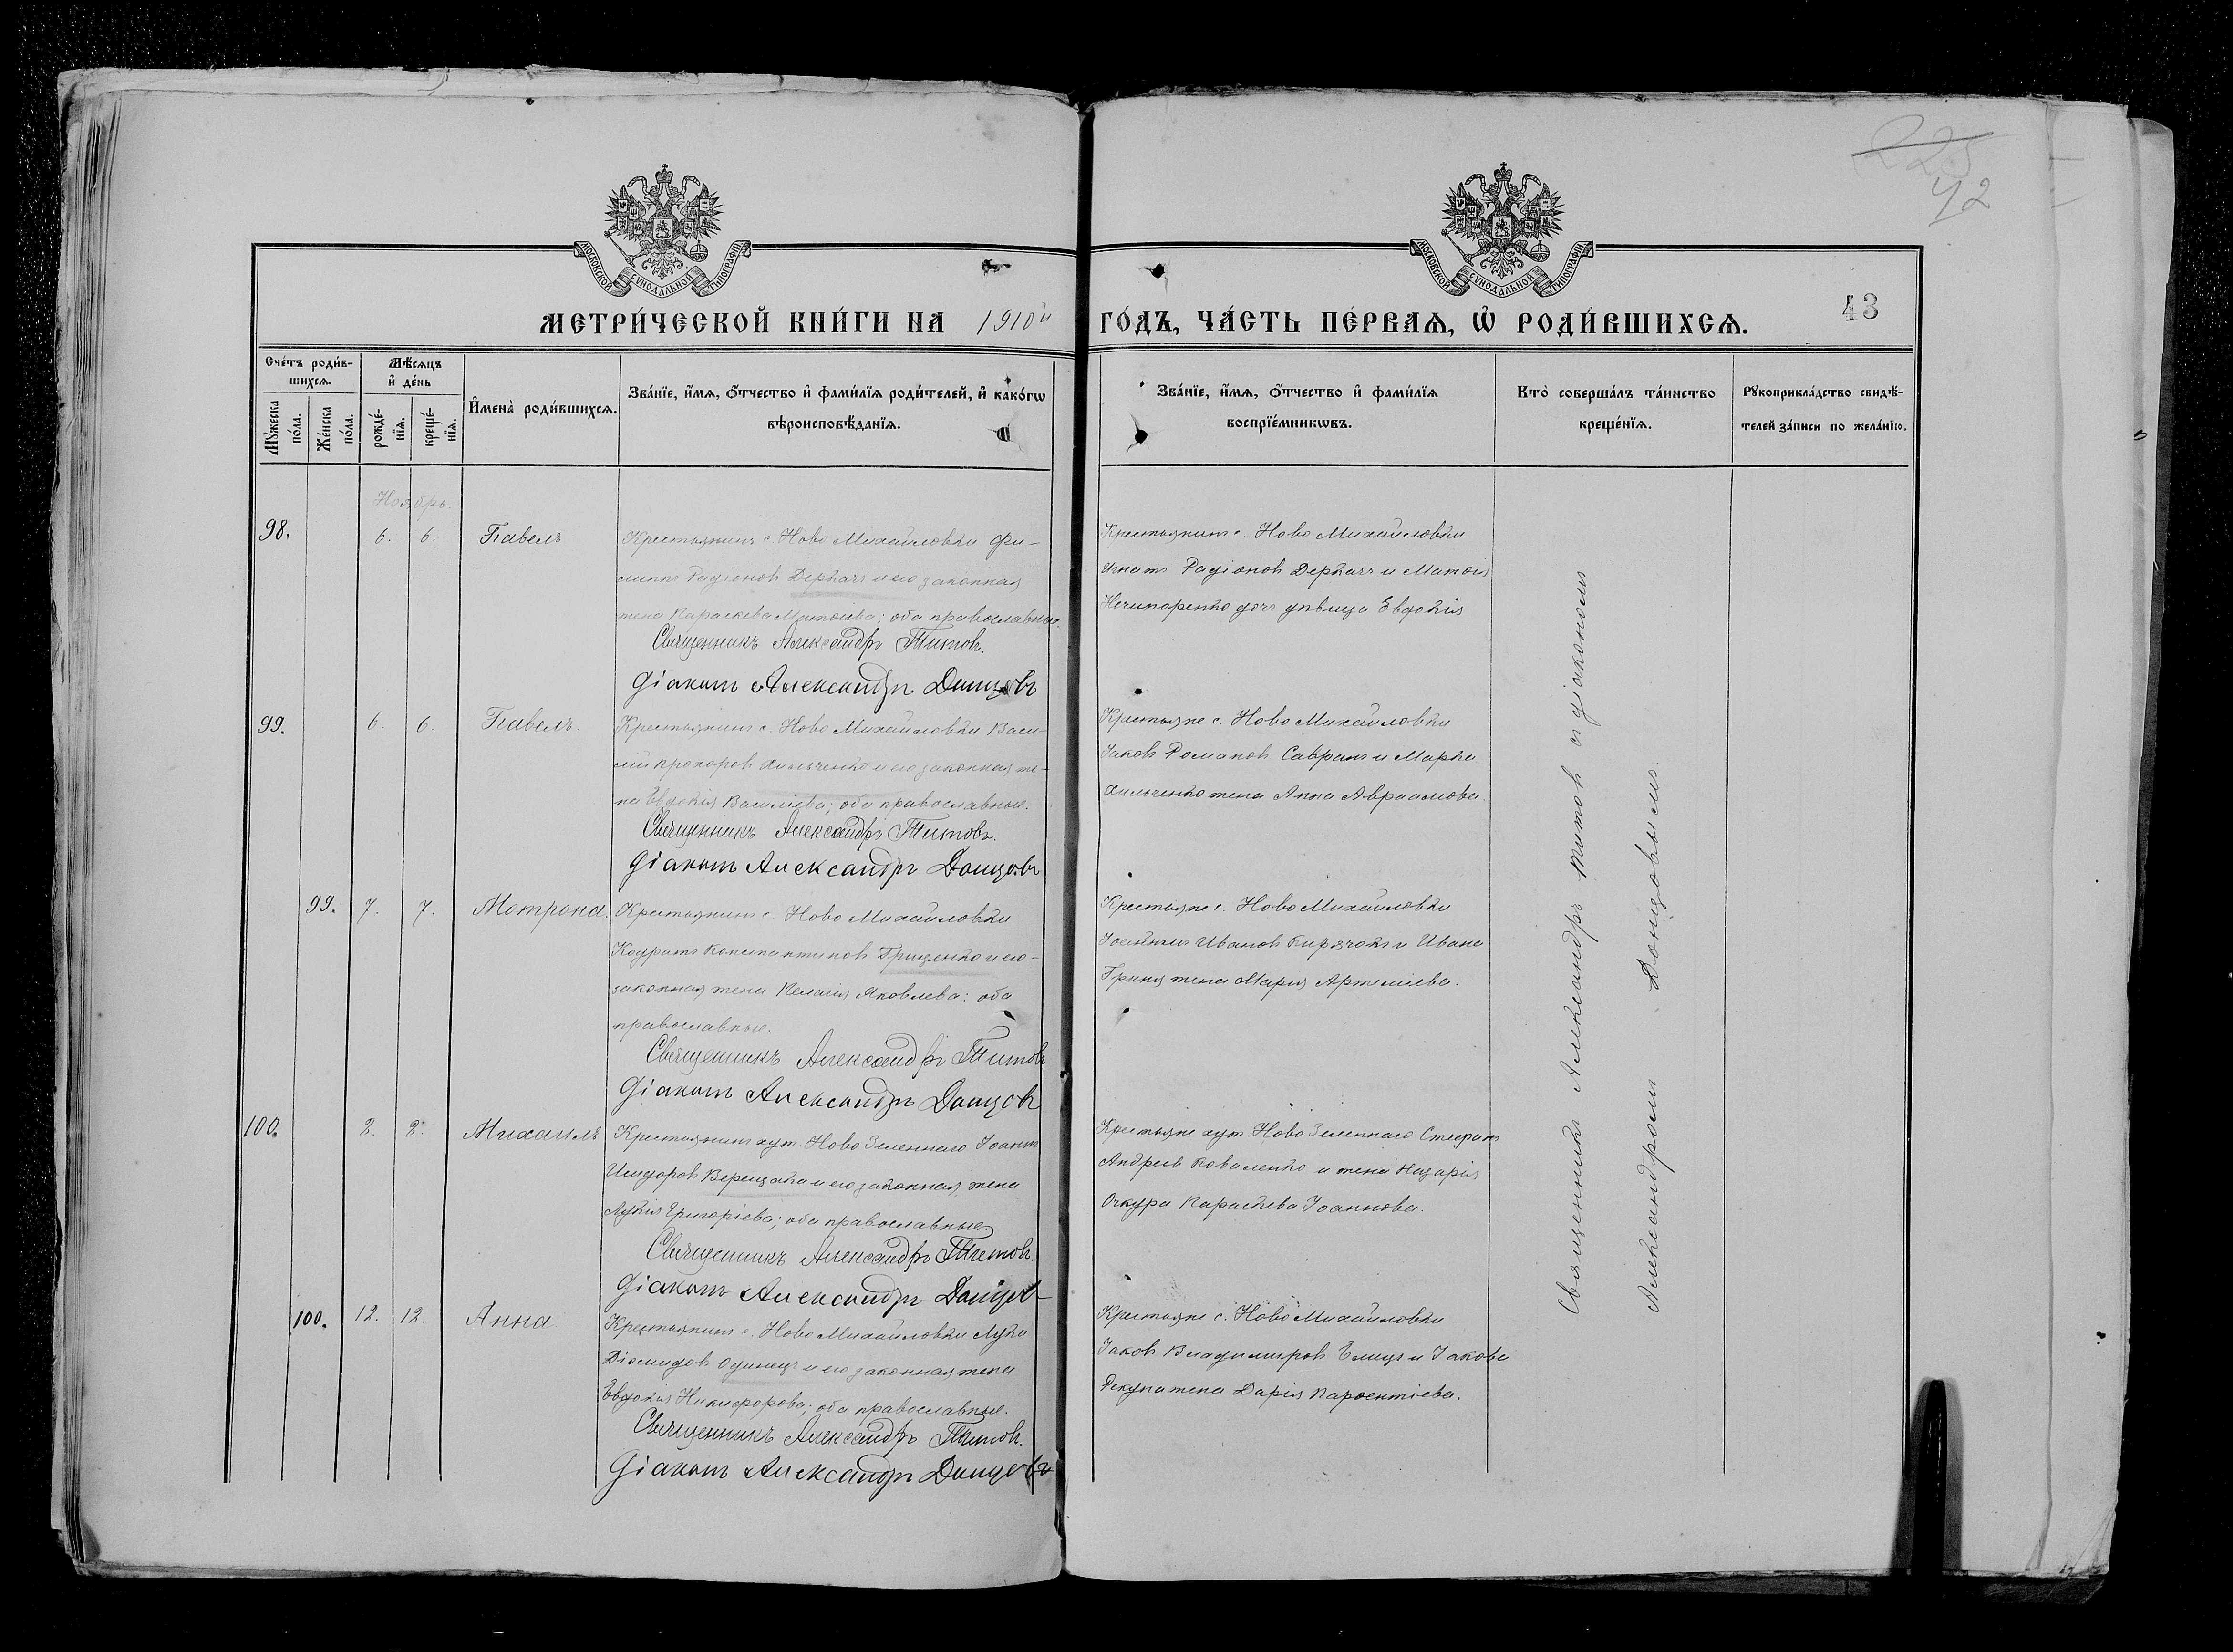 225
42
МОСКОВСКОЙ СѴНОДАЛЬНОЙ ТИПОГРАФІИ
МОСКОВСКОЙ СѴНОДАЛЬНОЙ ТИПОГРАФІИ
МЕТРИ́ЧЕСКОЙ КНИ́ГИ НА 1910й ГО́ДЪ, ЧА́СТЬ ПЕ́РВАѦ, Ѡ҆ РОДИ́ВШИХСѦ.
43
Сче́тъ роди́в-
шихсѧ.
Мꙋ́жеска
по́ла.
Же́нска
по́ла.
Мѣ́сѧцъ
и҆ де́нь
рожде́-
нїѧ.
креще́-
нїѧ.
И҆мена̀ роди́вшихсѧ.
Зва́нїе, и҆́мѧ, ѻ҆́тчество и҆ фами́лїѧ роди́телей, и҆ како́гѡ
вѣроисповѣ́данїѧ.
Зва́нїе, и҆́мѧ, ѻ҆́тчество и҆ фами́лїѧ
воспрїе́мникѡвъ.
Кто̀ соверша́лъ та́инство
креще́нїѧ.
Рꙋкоприкла́дство свидѣ́-
телей за́писи по жела́нїю.
Ноябрь.
98.
6. 6.
Павелъ
Крестьянинъ с. Ново Михайловки Фи-
липпъ Радіоновъ Деркачъ и его законная
жена Параскева Матвіева; оба православные.
Священникъ Александръ Титовъ.
Діаконъ Александръ Донцовъ
Крестьянинъ с. Ново Михайловки
Игнатъ Радіоновъ Деркачъ и Матвія
Нечипоренко дочь дѣвица Евдокія
99.
6. 6.
Павелъ.
Крестьянинъ с. Ново Михайловки Васи-
лій Прохоровъ Хильченко и его законная же-
на Евдокія Василіева; оба православные.
Священникъ Александръ Титовъ.
Діаконъ Александръ Донцовъ
Крестьяне с. Ново Михайловки
Іаковъ Романовъ Савранъ и Марка
Хильченко жена Анна Авраамова
99. 7. 7.
Матрона.
Крестьянинъ с. Ново Михайловки
Кодратъ Константиновъ Гриценко и его
законная жена Пелагія Яковлева: оба
православные.
Священникъ Александръ Титовъ
Діаконъ Александръ Донцовъ
Крестьяне с. Ново Михайловки
Иванов и Ивана
Гриня жена Марія Артеміева.
100.
2. 2.
Михаилъ
Крестьянинъ хут. Ново Зеленнаго Іоаннъ
Исидоровъ Верещака и его законная жена
Лукія Григоріева; оба православные.
Священникъ Александръ Титовъ.
Діаконъ Александръ Донцовъ
Крестьяне хут. Ново Зеленнаго Стефанъ
Андреевъ Коваленко и жена Назарія
Очкура Параскева Іоаннова.
100. 12. 12.
Анна.
Крестьянинъ с. Ново Михайловки Лука
Діомидовъ Одинецъ и его законная жена
Евдокія Никифорова; оба православные.
Священникъ Александръ Титовъ.
Діаконъ Александръ Донцовъ
Крестьяне с. Ново Михайловки
Іаковъ Владиміровъ и Іакова
жена Дарія Парфентіева.
Священникъ Александръ Титовъ съ діакономъ
Александромъ Донцовымъ.